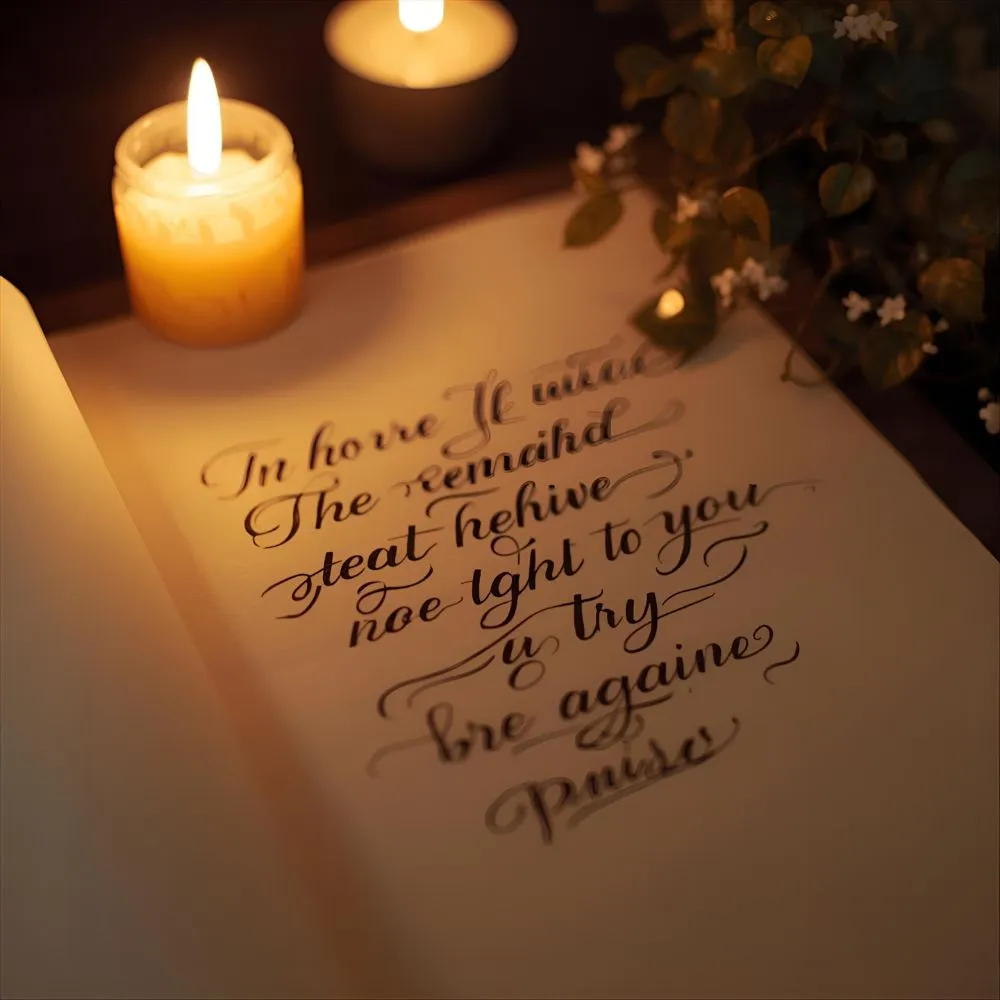 In horre Il
The remaihd
steat hehive
noe ight to you
y try
bre againe